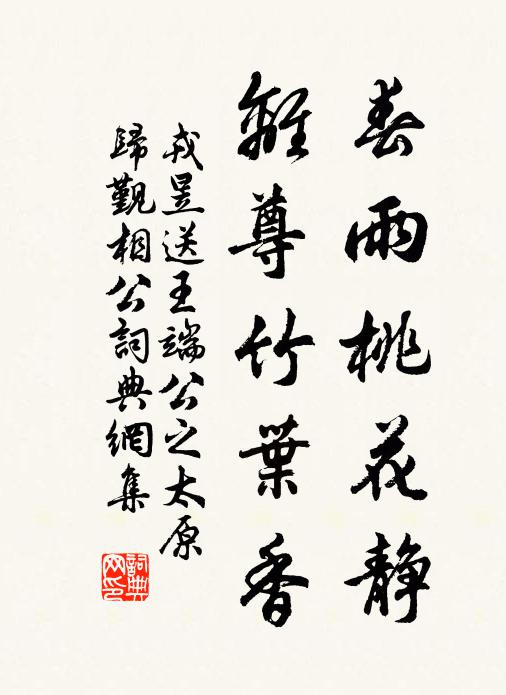 春雨桃花静
離尊竹葉香
戎昱送王端公之太原
歸覲相公詞典網集
詞典
网印